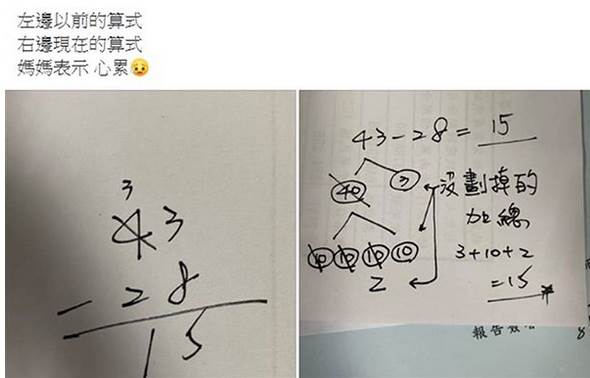 左邊以前的算式
右邊現在的算式
媽媽表示 心累😥
3
43
- 28
15
43-28= 15
40 3
沒劃掉的
加總
10 10 10 10
2
3+10+2
=15
報告
8